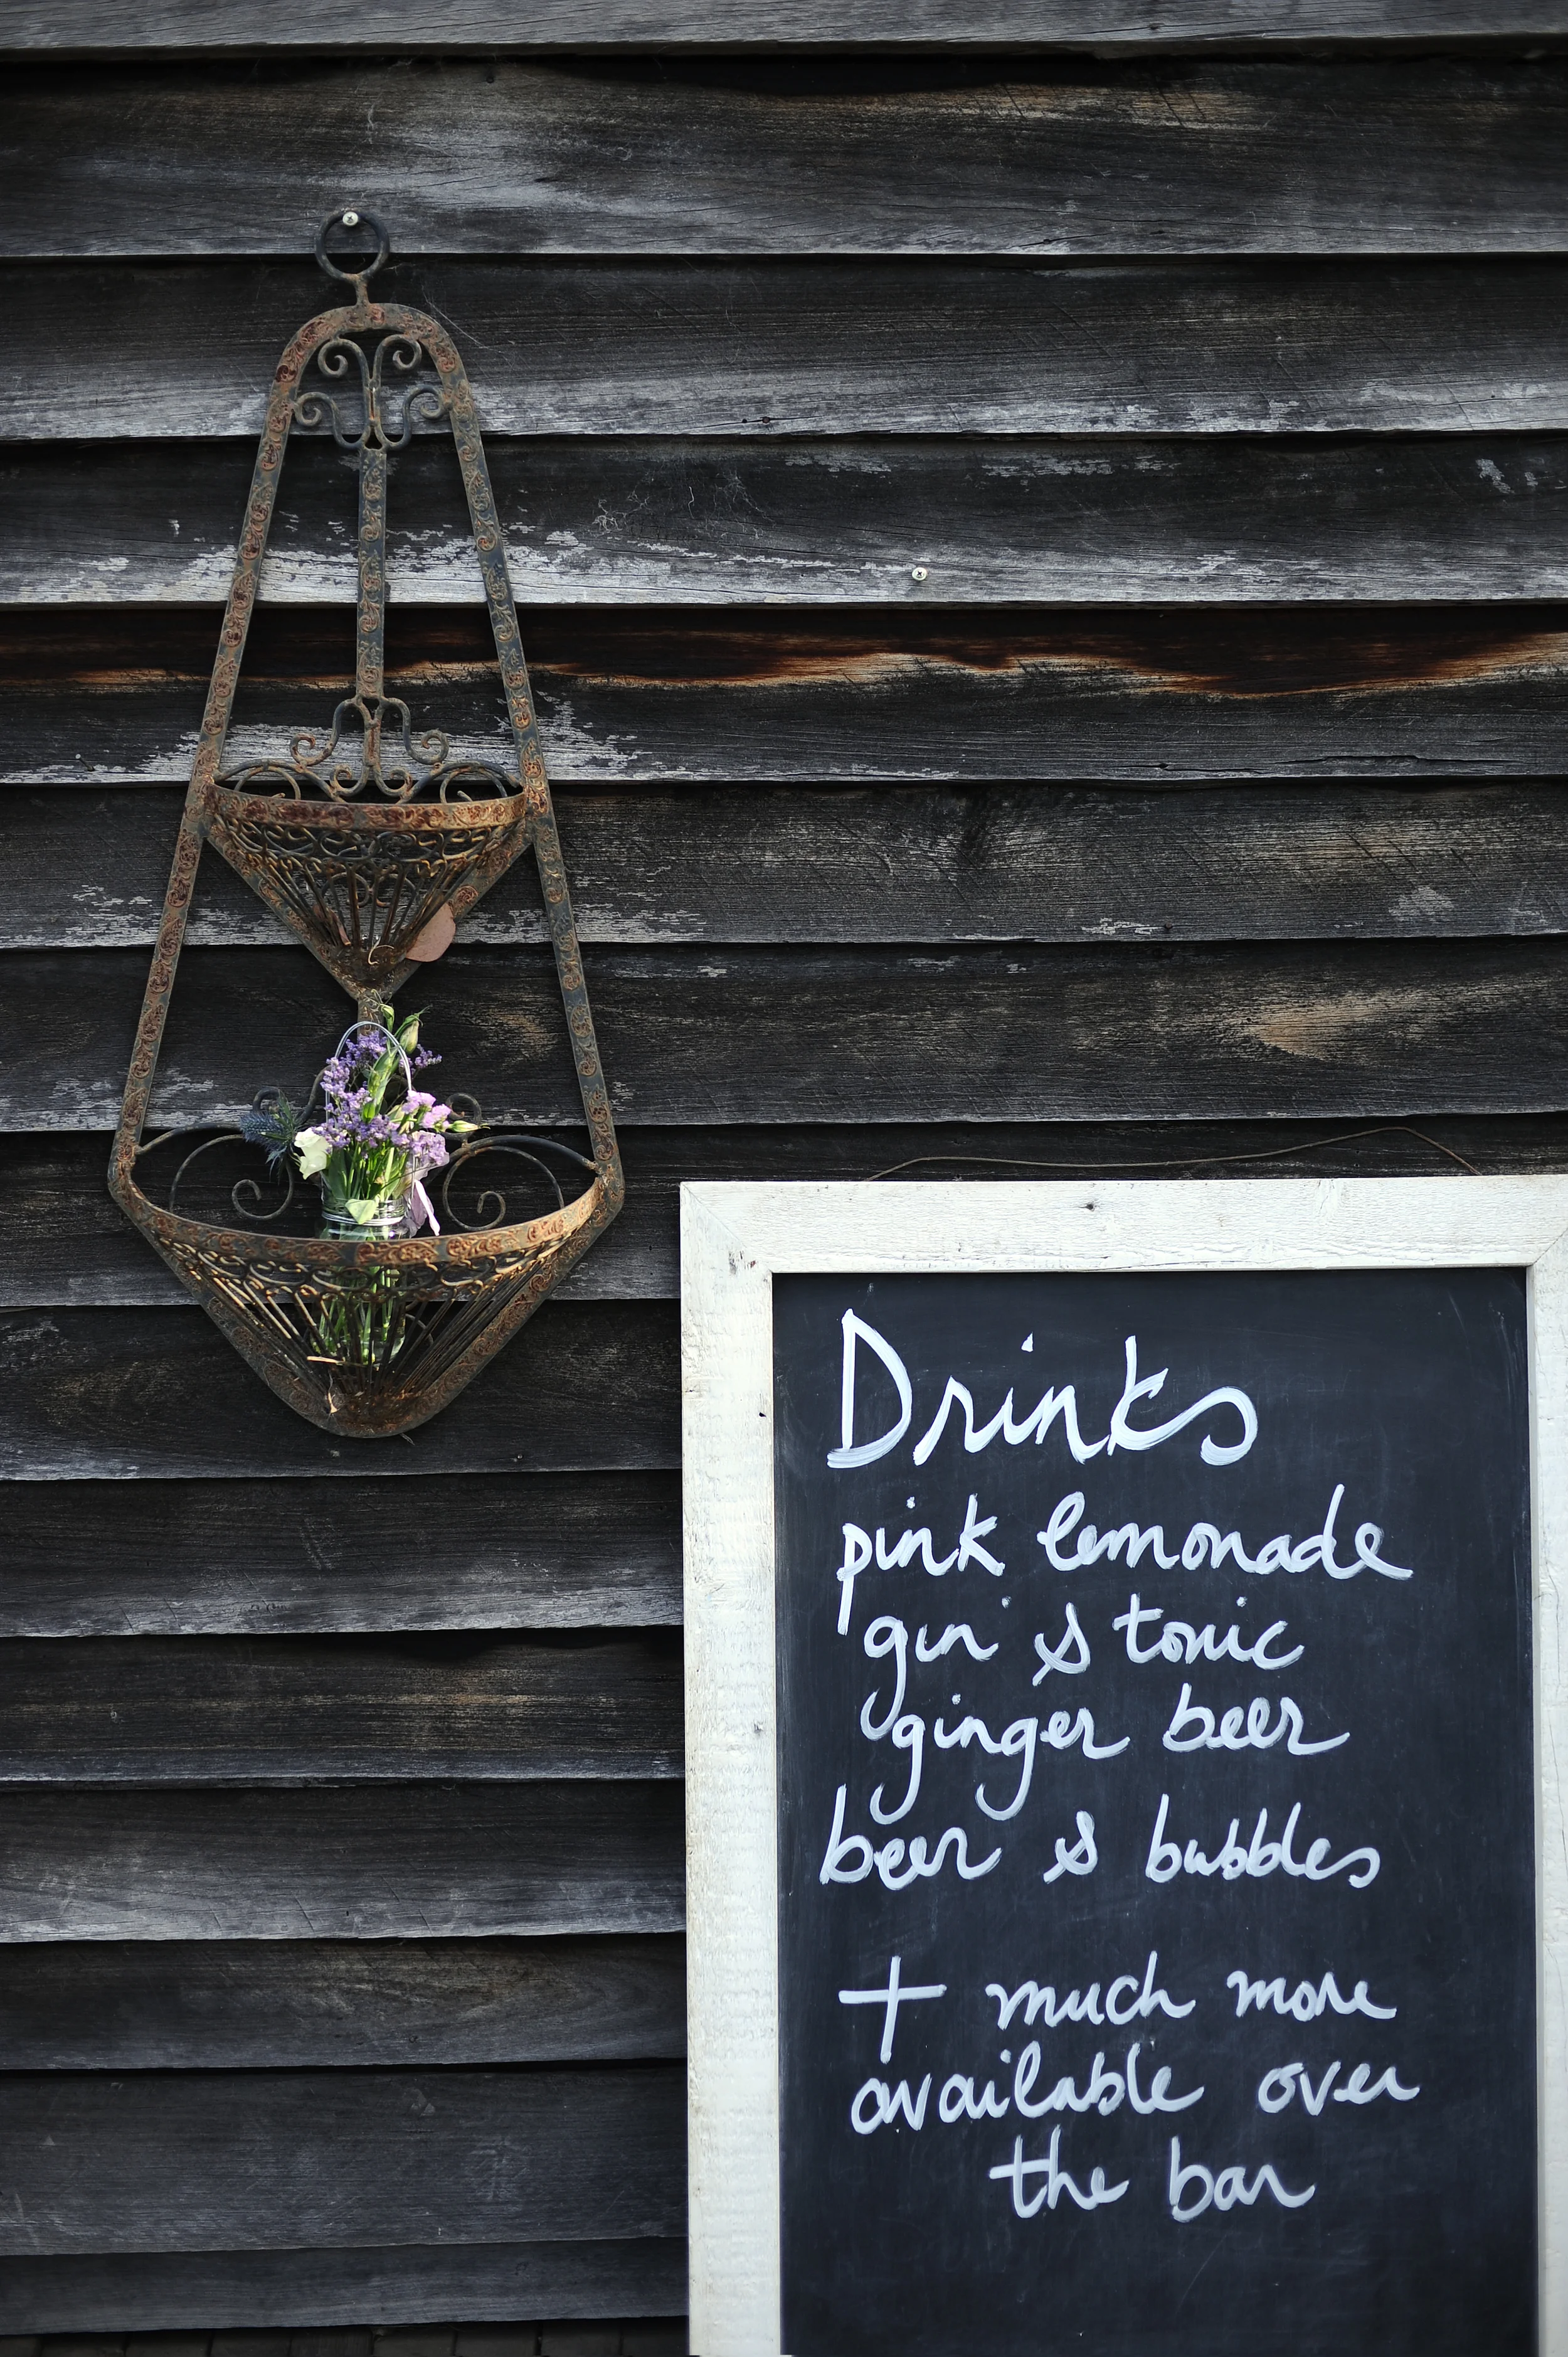 Drinks
pink lemonade
gin & tonic
ginger beer
beer & bubbles
+ much more
available over
the bar